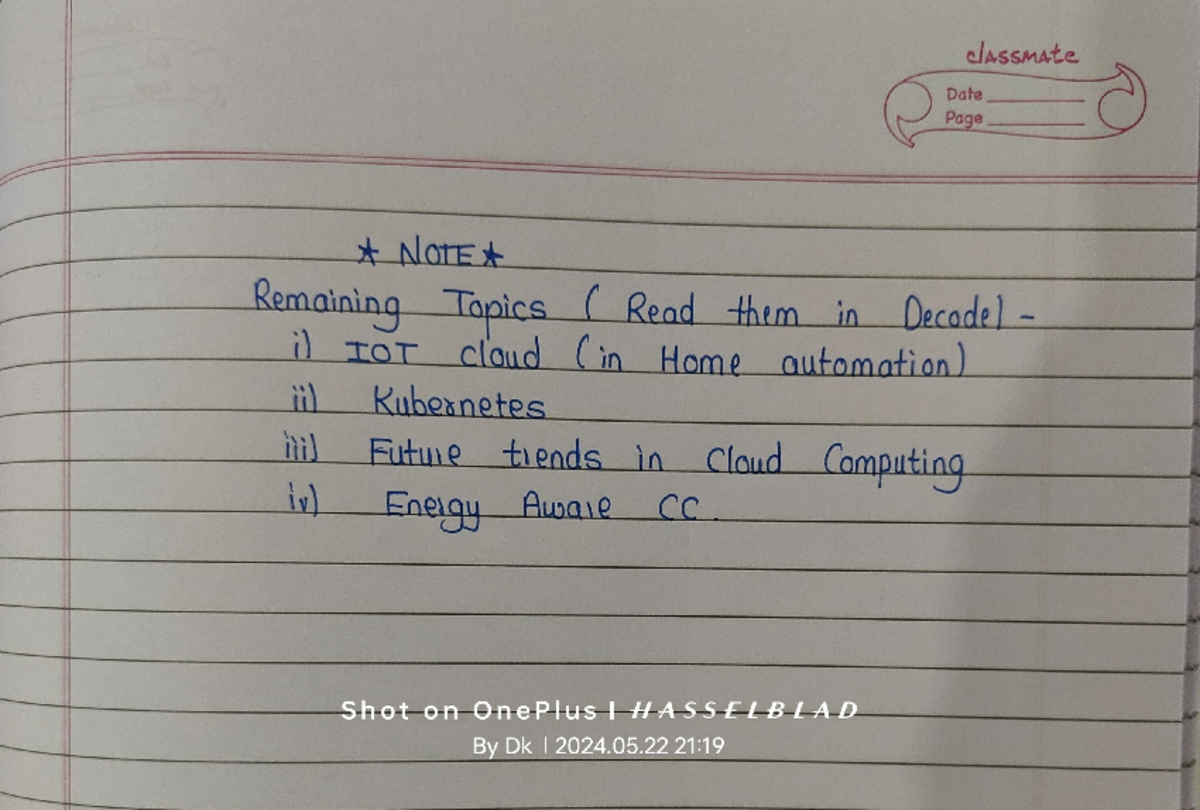 classmate
Date
Page
★ NOTE ★
Remaining Topics ( Read them in Decode) -
i) IOT cloud (in Home automation)
ii) Kubernetes
iii) Future trends in Cloud Computing
iv) Energy Aware CC.
Shot on OnePlus | HASSELBLAD
By Dk | 2024.05.22 21:19